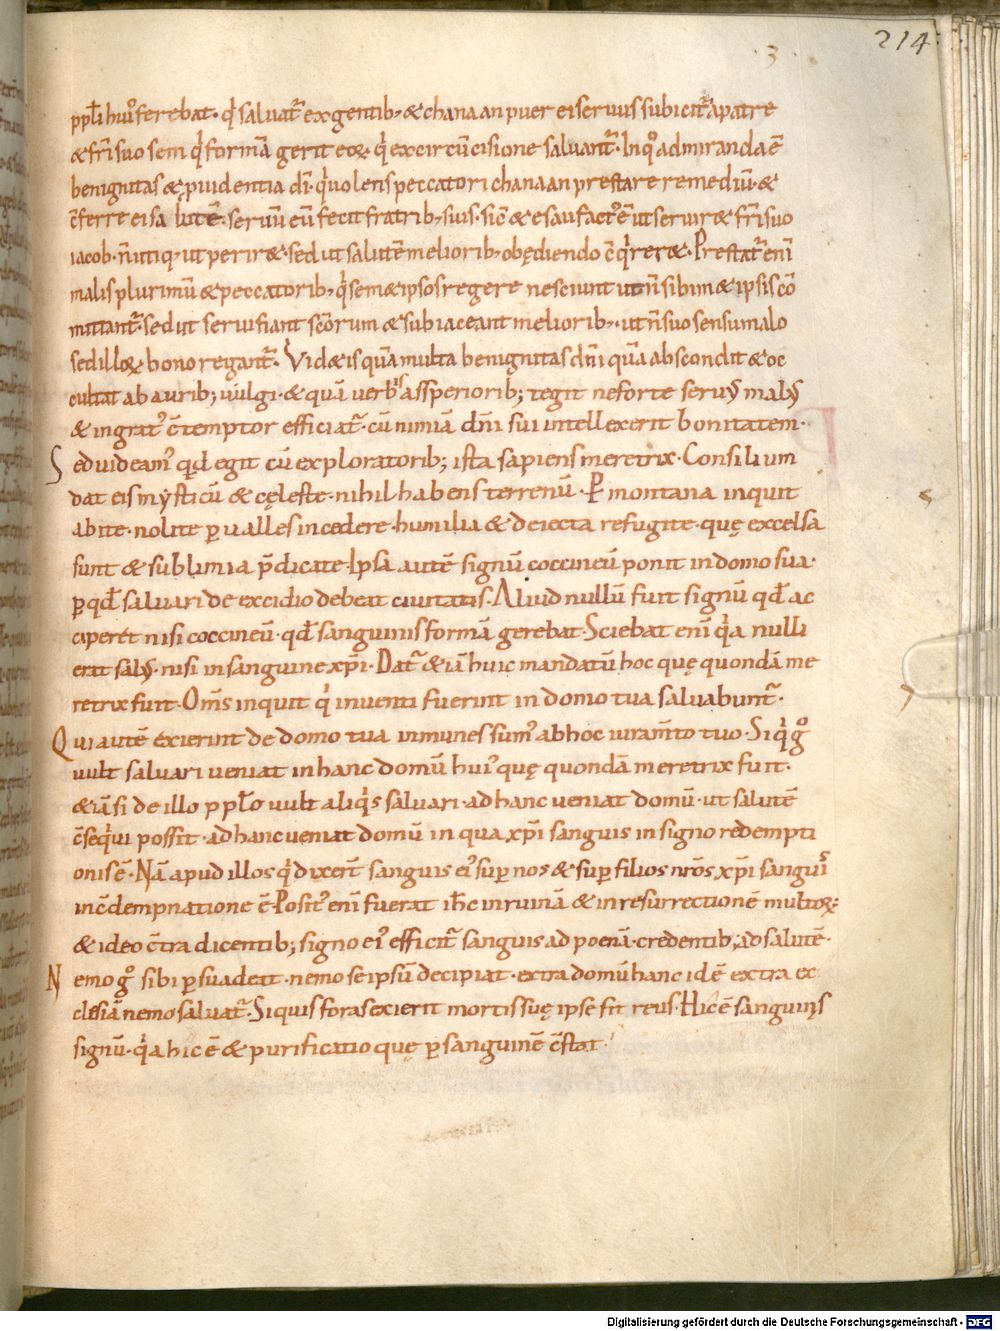 214
3
ppłi hui᾽ ferebat · q̇ saluat᷑ ex gentib; & chanaan puer ei seruus subicit᷑ a patre
& fr̄i suo sem q̇ formā gerit eoꝝ · q̇ ex circūcisione saluant᷑ · In q̊ admiranda ē
benignitas & ꝓuidentia dī · q̇ uolens peccatori chanaan prestare remediū · &
c̄ferre ei salutē · seruū eū fecit fratrib; suis · sic̄ & esau fact᾽ ē ut seruir& fr̄i suo
iacob · n̄ utiq; ut perir& · sed ut salutē meliorib; obędiendo c̄q̇rer& · Prestat᷑ enī
malis plurimū & peccatorib; q̇ semet ipsos regere nesciunt ut n̄ sibim& ipsis cō
mittant᷑ · sed ut serui fiant sc̄orum & subiaceant meliorib; · ut n̄ suo sensu malo
sed illoꝝ bono regant᷑ · Vid&is quā multa benignitas dn̄i quā abscondit & oc
cultat ab aurib; uulgi · & quā uerbis assperiorib; tegit ne forte seruꝰ malꝰ
& ingrat᾽ c̄temptor efficiat᷑ · cū nimiā dn̄i sui intellexerit bonitatem ·
Sed uideam᾽ qd̄ egit cū exploratorib; ista sapiens meretrix · Consilium
dat eis mysticū & cęleste · nihil habens terrenū · P̱ montana inquit
abite · nolite ꝑ ualles incedere · humilia & deiecta refugite · quę excelsa
sunt & sublimia p̄dicate · Ipsa autē signū coccineū ponit in domo sua ·
ꝑ qd̄ saluari de excidio debeat ciuitatis · Aliud nullū fuit signū qd̄ ac
ciperet nisi coccineū · qd̄ sanguinis formā gerebat · Sciebat enī q̇a nulli
erat salꝰ · nisi in sanguine xp̄i · Dat᷑ & iā huic mandatū hoc quę quondā me
retrix fuit · Om̄s inquit q̇ inuenti fuerint in domo tua saluabunt᷑ ·
Qui autē exierint de domo tua inmunes sum᾽ ab hoc iuram̄to tuo · Si q̇s g̊
uult saluari ueniat in hanc domū hui᾽ quę quondā meretrix fuit ·
& iā si de illo ppło uult aliq̇s saluari · ad hanc ueniat domū · ut salutē
c̄seq̇ui possit · ad hanc ueniat domū in qua xp̄i sanguis in signo redempti
onis ē · Nā apud illos q̇ dixert̄ sanguis ei᾽ suꝑ nos & suꝑ filios nr̄os xp̄i sanguis
in c̄dempnatione ē · Posit᾽ enī fuerat ih̄c in ruinā & in resurrectionē multoꝝ ·
& ideo c̄tradicentib; signo ei᾽ efficit᷑ sanguis ad poenā · credentib; ad salutē ·
Nemo g̊ sibi ꝑsuadeat · nemo se ipsū decipiat · extra domū hanc id ē extra ec
clesiā nemo saluat᷑ · Si quis foras exierit mortis suę ipse fit reus · Hic ē sanguinis
signū · q̇a hic ē & purificatio quę ꝑ sanguinē c̄stat ·
Digitalisierung gefördert durch die Deutsche Forschungsgemeinschaft - DFG